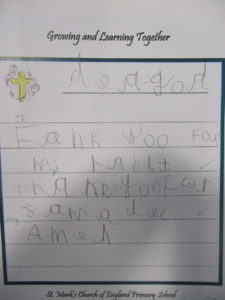 Growing and Learning Together
dea god
Th
Fank yoo For
mi rabbit
Thank Yoo For
Amen
St. Mark's Church of England Primary School